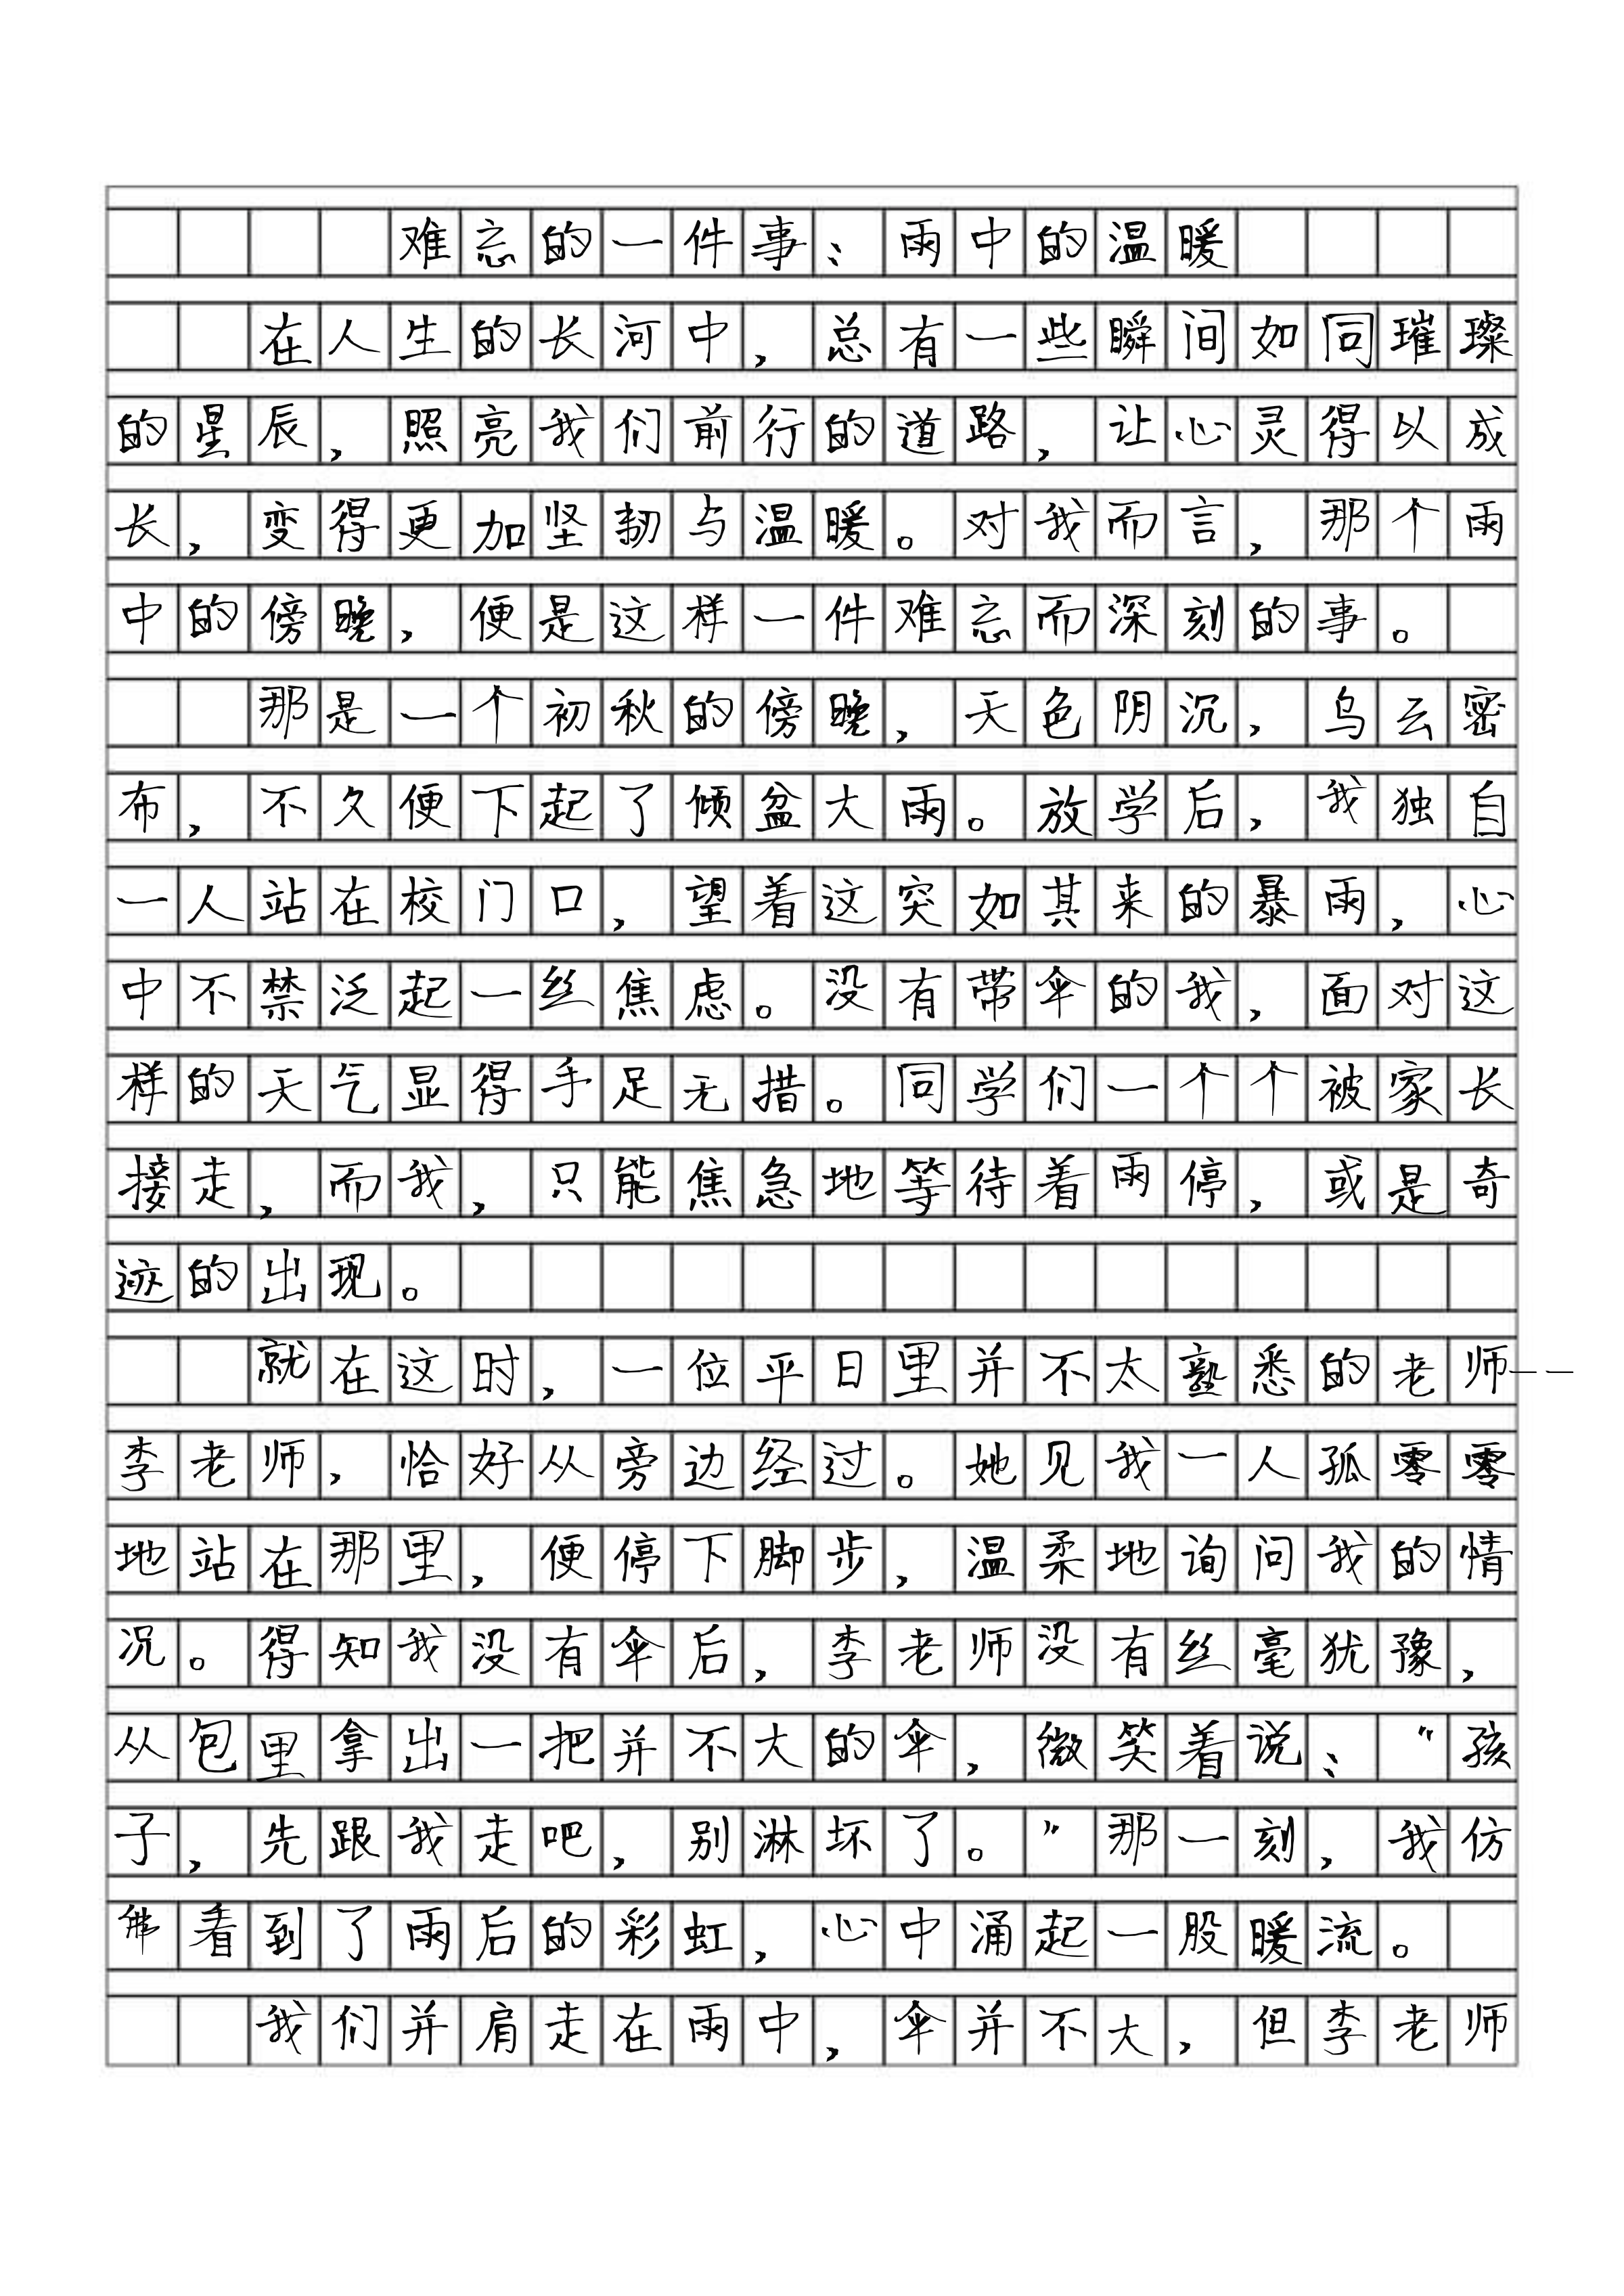 难忘的一件事：雨中的温暖
在人生的长河中，总有一些瞬间如同璀璨
的星辰，照亮我们前行的道路，让心灵得以成
长，变得更加坚韧与温暖。对我而言，那个雨
中的傍晚，便是这样一件难忘而深刻的事。
那是一个初秋的傍晚，天色阴沉，乌云密
布，不久便下起了倾盆大雨。放学后，我独自
一人站在校门口，望着这突如其来的暴雨，心
中不禁泛起一丝焦虑。没有带伞的我，面对这
样的天气显得手足无措。同学们一个个被家长
接走，而我，只能焦急地等待着雨停，或是奇
迹的出现。
就在这时，一位平日里并不太熟悉的老师——
李老师，恰好从旁边经过。她见我一人孤零零
地站在那里，便停下脚步，温柔地询问我的情
况。得知我没有伞后，李老师没有丝毫犹豫，
从包里拿出一把并不大的伞，微笑着说：“孩
子，先跟我走吧，别淋坏了。”那一刻，我仿
佛看到了雨后的彩虹，心中涌起一股暖流。
我们并肩走在雨中，伞并不大，但李老师